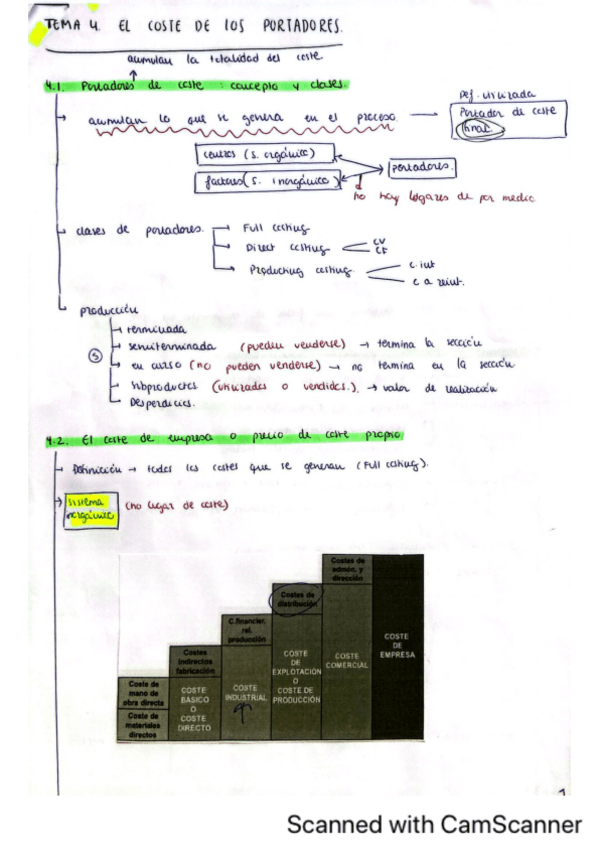 TEMA 4. EL COSTE DE LOS PORTADORES.
acumulan la totalidad del coste.
4.1. Portadores de coste: concepto y clases.
Def. utilizada
→ acumulan lo que se genera en el proceso. — Portador de coste
final
centros (s. orgánico)
portadores.
factores (s. inorgánico)
no hay lugares de por medio
clases de portadores. → Full costing
→ Direct costing CV
CF
→ Producting costing c. int
c.
producción
→ terminada
→ semiterminada (pueden venderse) → termina la sección
5 → en curso (no pueden venderse) → no termina en la sección
→ subproductos (utilizados o vendidos.) → valor de realización
Desperdicios.
4.2. El coste de empresa o precio de coste propio.
→ Definición → todos los costes que se generan (Full costing).
→ sistema (no lugar de coste)
inorgánico
Costes de
admón. y
dirección
Costes de
distribución
C.financier.
rel.
producción
Costes
indirectos
fabricación
Coste de
mano de
obra directa
Coste de
materiales
directos
COSTE
BASICO
O
COSTE
DIRECTO
COSTE
INDUSTRIAL
COSTE
DE
EXPLOTACIÓN
O
COSTE DE
PRODUCCIÓN
COSTE
COMERCIAL
COSTE
DE
EMPRESA
1
Scanned with CamScanner